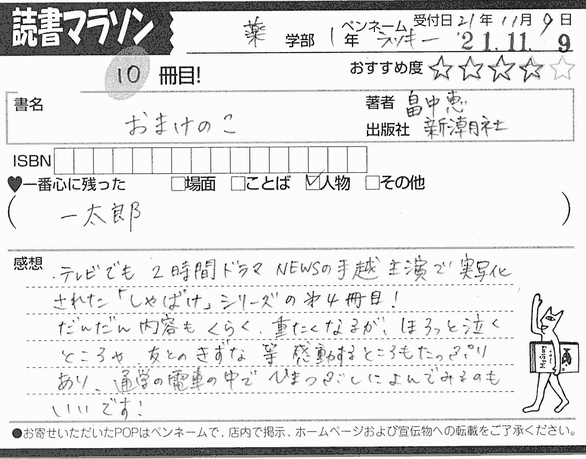 読書マラソン
薬 学部 1年 ペンネーム ラッキー 受付日 21年 11月 9日
'21.11. 9
10 冊目!
おすすめ度 ☆☆☆☆☆
書名 おまけのこ
著者 畠中恵
出版社 新潮社
ISBN
♥一番心に残った □場面 □ことば ☑人物 □その他
( 一太郎 )
感想
・テレビでも 2時間ドラマ NEWSの手越主演で実写化
された「しゃばけ」シリーズの第4冊目!
だんだん内容もくらく、重たくなるが、ほろっと泣く
ところや、友とのきずな 等 感動するところもたっぷり
あり、通学の電車の中で ひまつぶしによんでみるのも
いいです!
●お寄せいただいたPOPはペンネームで、店内で掲示、ホームページおよび宣伝物への転載をご了承ください。